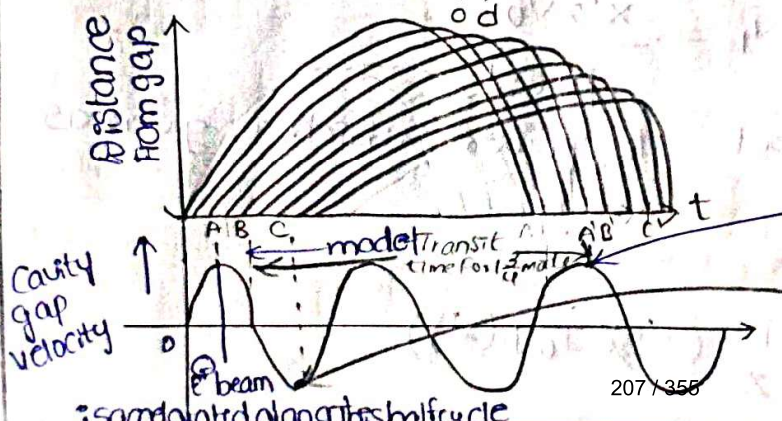 o d
Distance
From gap
A B C A' B' C' t
mode Transit
time for 1 3/4 mode
Cavity
gap
velocity
0
e⊖ beam
207 / 355